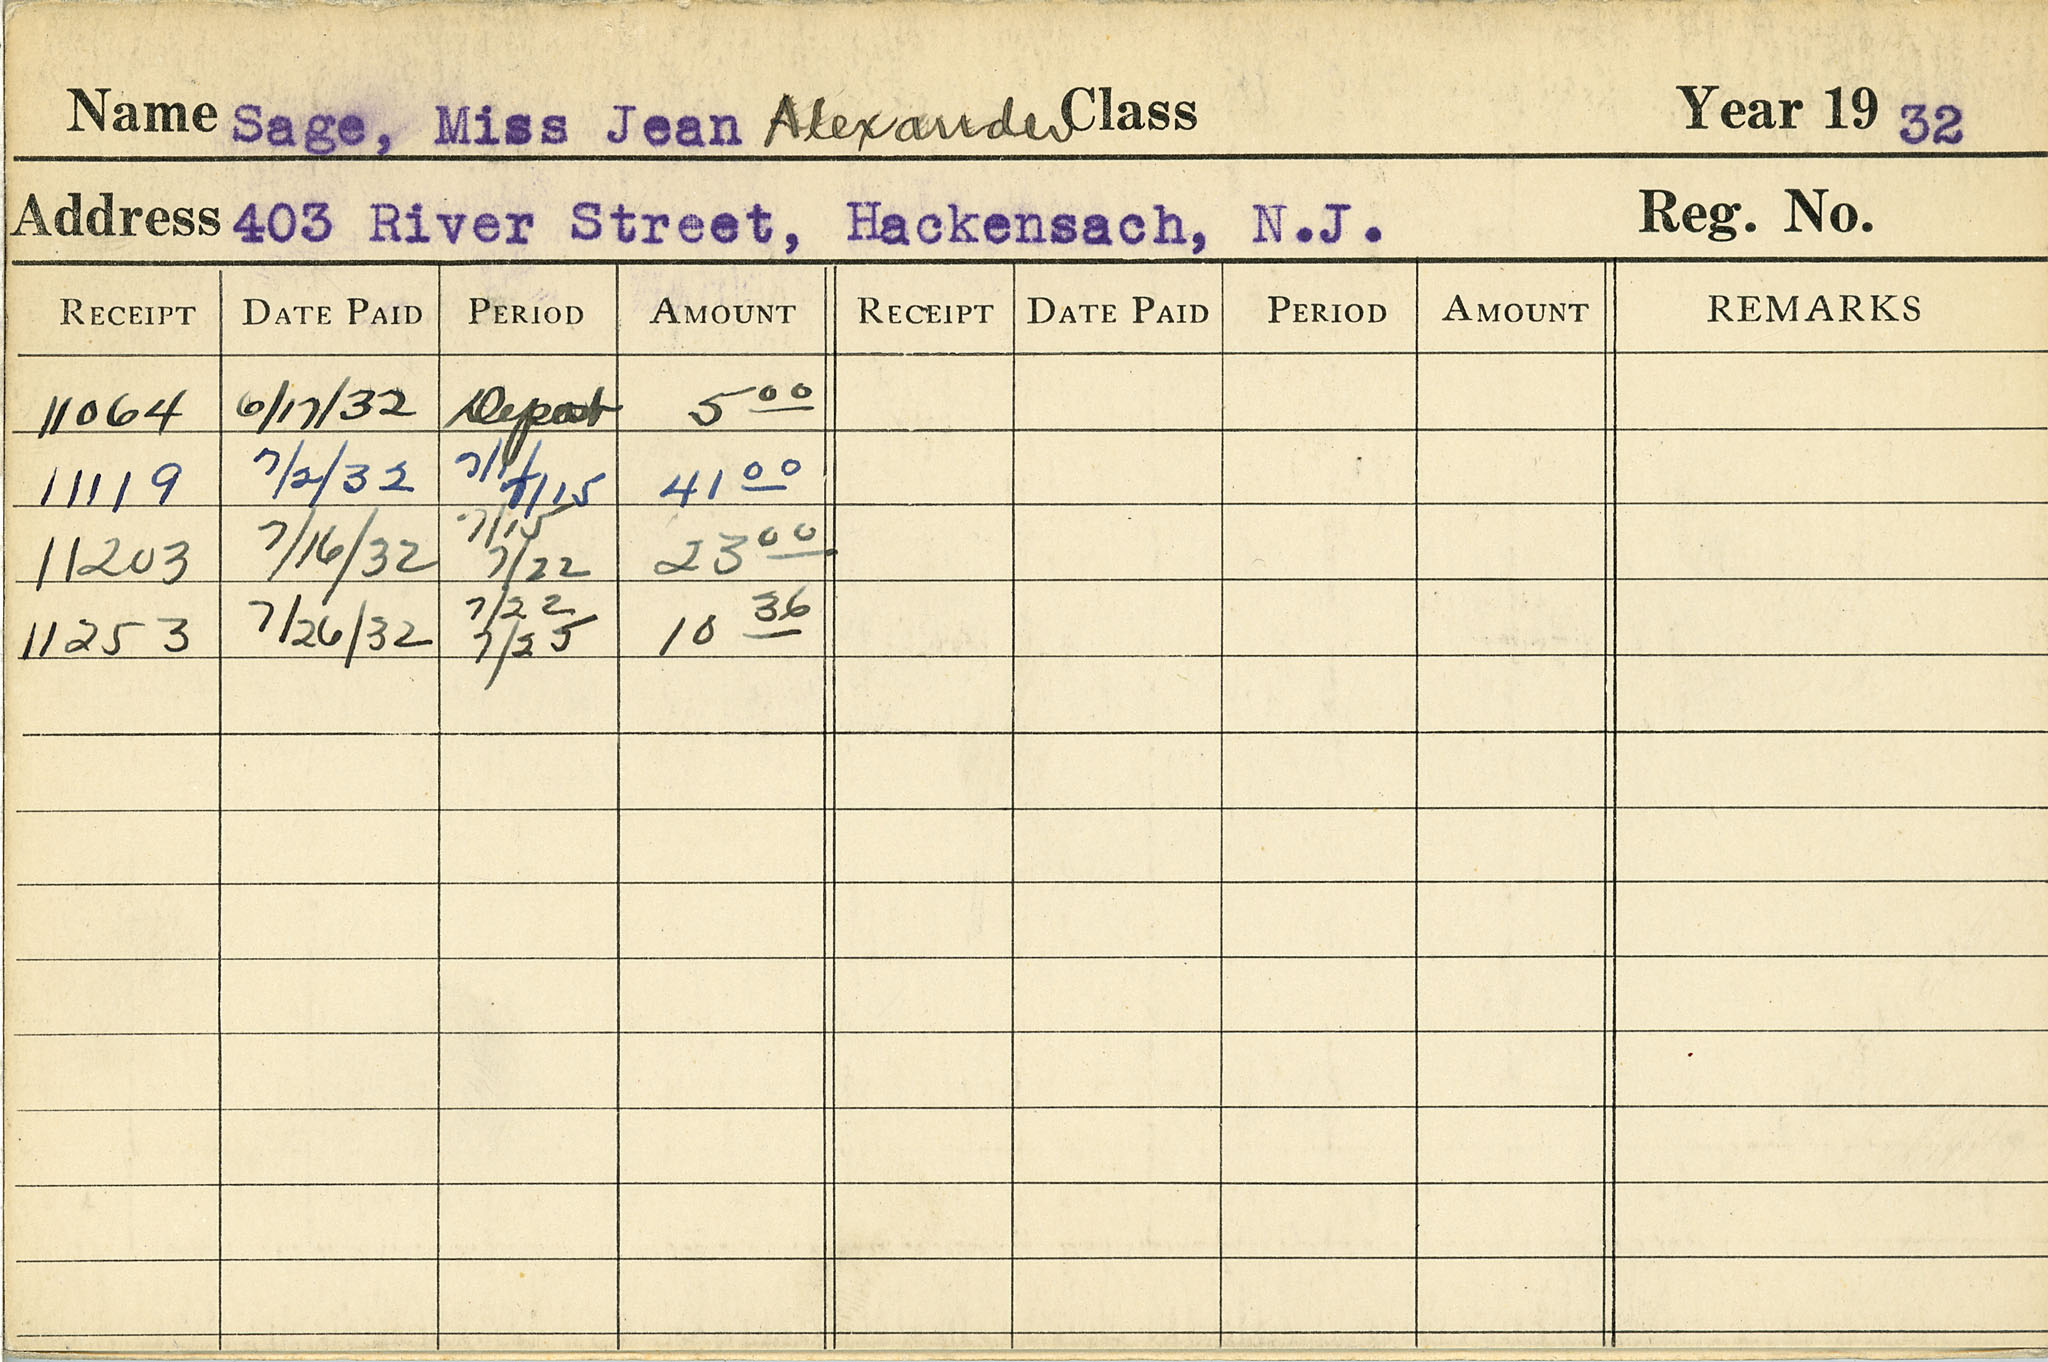 Name Sage, Miss Jean Alexander Class Year 19 32
Address 403 River Street, Hackensach, N.J. Reg. No.
RECEIPT DATE PAID PERIOD AMOUNT RECEIPT DATE PAID PERIOD AMOUNT REMARKS
11064 6/17/32 Deposit 5 00
11119 7/2/32 7/1/ 7/15 41 00
11203 7/16/32 7/15 7/22 23 00
11253 7/26/32 7/22 7/25 10 36